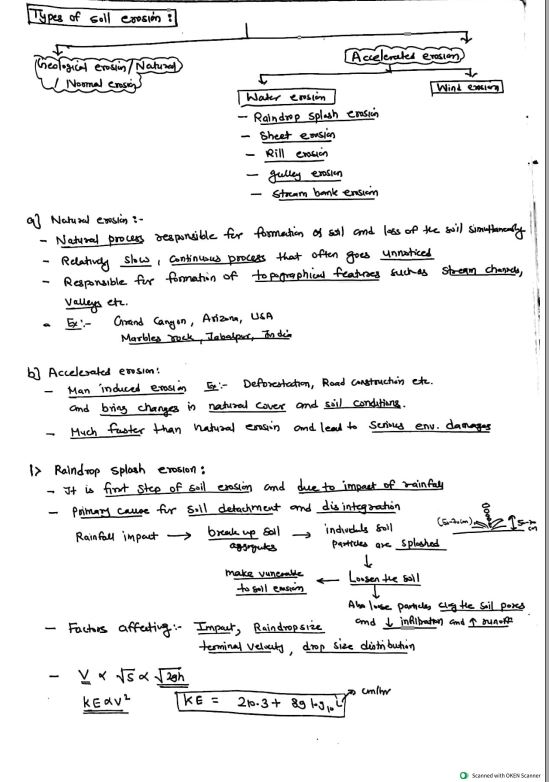 Types of soil erosion :
Geological erosion/Natural
/ Normal erosion
Accelerated erosion
Water erosion
Wind erosion
- Raindrop splash erosion
- Sheet erosion
- Rill erosion
- gulley erosion
- Stream bank erosion
a] Natural erosion :-
- Natural process responsible for formation of soil and loss of the soil simultaneously
- Relatively slow, continuous process that often goes unnoticed
- Responsible for formation of topographical features such as stream channels,
Valleys etc.
- Ex:- Grand Canyon, Arizona, USA
Marbles rock, Jabalpur, India
b] Accelerated erosion:
- Man induced erosion Ex:- Deforestation, Road construction etc.
and bring changes in natural cover and soil conditions.
- Much faster than natural erosion and lead to serious env. damages
1> Raindrop splash erosion :
- It is first step of soil erosion and due to impact of rainfall
- Primary cause for soil detachment and disintegration
Rainfall impact → break up soil
aggregates
→ individuls soil
particles are splashed
↓
Loosen the soil
← make vunerable
to soil erosion
↓
Also loose particles clog the soil pores
and ↓ infiltration and ↑ runoff
- Factors affecting:- Impact, Raindrop size
terminal velocity, drop size distribution
- V ∝ √s ∝ √2gh
KE ∝ V²
KE = 210.3 + 89 log₁₀ i
→ cm/hr
Scanned with OKEN Scanner